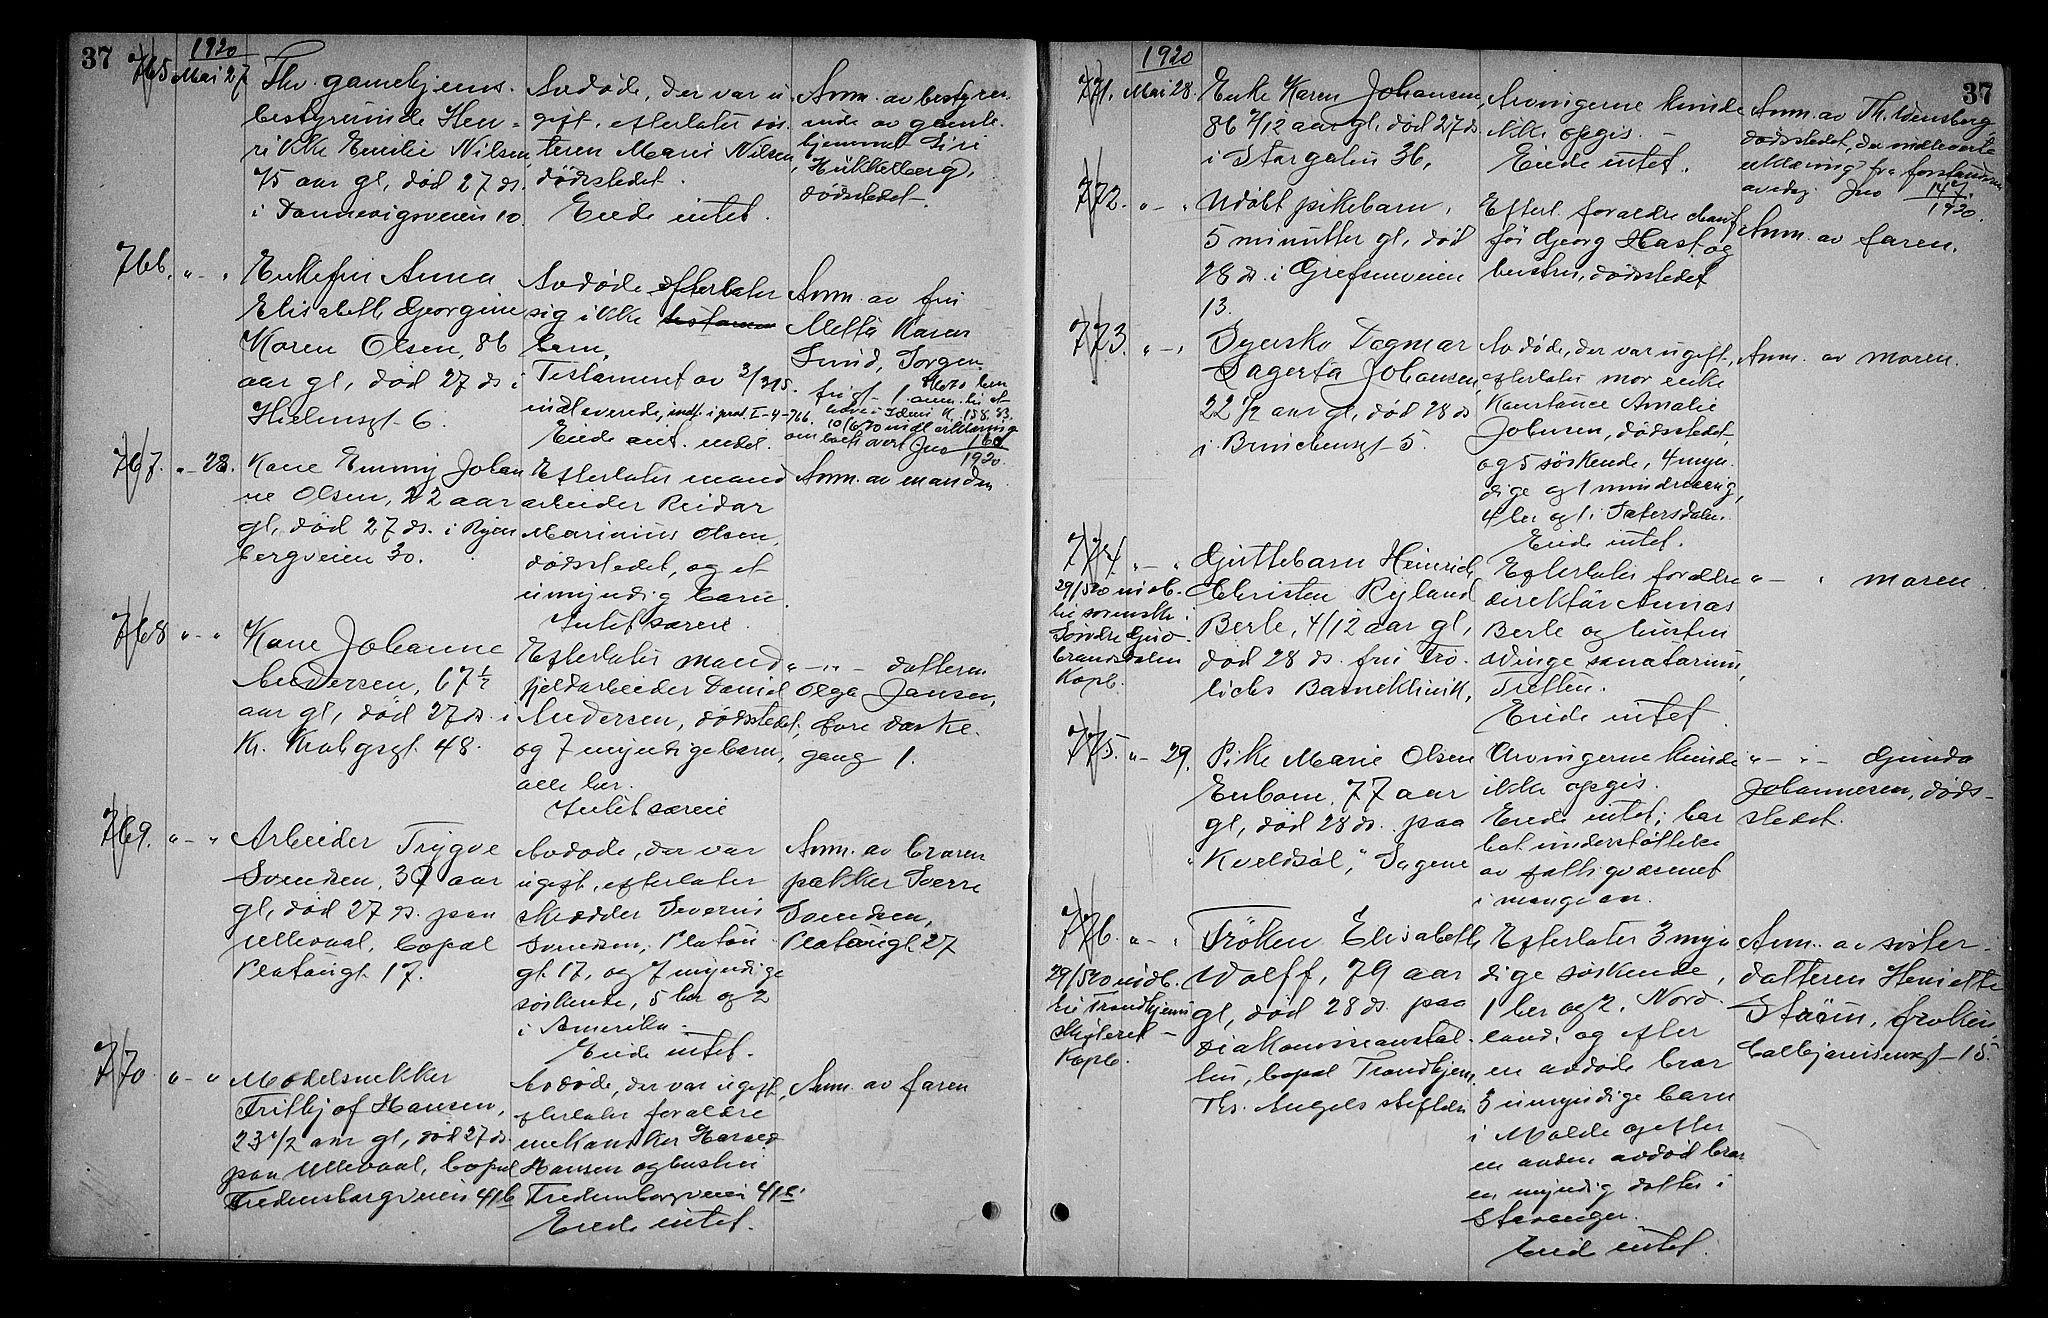 37
1920
765 Mai 27
Fhv. gamlehjems-
bestyrerinde Hen-
rikke Emilie Nilsen
75 aar gl, død 27 ds.
i Dannevigsveien 10.
Avdøde, der var u
gift, efterlater søs
teren Marie Nilsen,
dødsstedet.
Eiede intet.
Anm. av bestyrer
inde av gamle
hjemmet Siri
Hukkelberg,
dødsstedet.
766. " - "
Enkefru Anna
Elisabeth Georgine
Karen Olsen, 86
aar gl, død 27 ds i
Hielmsgt. 6.
Avdøde efterlater
sig ikke
barn.
Testament av 3/3 15.
indleveredes, indf. i prot. I - 4 - 766.
Eiede ant. endel.
Anm. av fru
Metta Karen
Lund, Jorgen
1920.
767. " - 28.
Kone Emmy Johan
ne Olsen, 22 aar
gl, død 27 ds. i Ryen
bergveien 30.
Efterlater mand
arbeider Reidar
Marinius Olsen,
dødsstedet, og et
umyndig barn.
Intet særeie.
Anm. av manden
768 " - "
Kone Johanne
Andersen, 67 1/2
aar gl, død 27 ds. i
Kr. Krohgsgt. 48.
Efterlater mand
fjeldarbeider Daniel
Andersen, dødsstedet,
og 7 myndige barn,
alle her.
Intet særeie
" - " - datteren
Olga Jansen,
gang 1.
769. " - "
Arbeider Trygve
Svendsen, 37 aar
gl, død 27 ds. paa
Ullevaal, bopæl
Platousgt. 17.
Avdøde, der var
ugift, efterlater
skrædder Severin
Svendsen, Platou
gt. 17, og 7 myndige
søskende, 5 her og 2
i Amerika.
Eiede intet.
Anm. av broren
pakker Sverre
Svendsen,
Platousgt. 27
770. " - "
Modelsnekker
Fritjof Hansen,
23 1/2 aar gl, død 27 ds.
paa Ullevaal, bopæl
Fredensborgveien 41 b
Avdøde, der var ugift,
efterlater forældre
mekaniker Harald
Hansen og hustru
Fredensborgveien 41 b.
Eiede intet.
Anm. av faren
37
1920
771. Mai 28.
Enke Karen Johansen,
86 7/12 aar gl, død 27 ds
i Storgaten 36.
Arvingerne kunde
ikke opgis. -
Eiede intet.
Anm. av Th. Wensberg,
dødsstedet, der indleverte
erklæring fra forstanderen
av idag. Jno 147/1920.
772. " - "
Udøbt pikebarn,
5 minutter gl, død
28 ds. i Grefsenveien
13.
Efterl. forældre chauf
før Georg Hast og
hustru, dødsstedet
Anm. av faren.
773. " - "
Syerske Dagmar
Lagerta Johansen,
22 1/2 aar gl, død 28 ds
i Brinchensgt. 5.
Avdøde, der var ugift,
efterlater mor enke
Konstance Amalie
Johansen, dødsstedet,
og 5 søskende, 4 myn
dige og 1 mindreaarig,
4 her og 1 i Sætersdalen.
Eiede intet.
Anm. av moren.
774. " - "
29/5 20 indb.
til sorenskr. i
Søndre Gud-
brandsdalen
Kopb.
Guttebarn Heinrich
Christen Ryland
Berle, 4/12 aar gl,
død 28 ds. fru Frø-
lichs Barneklinik,
Efterlater forældre
direktør Annas
Berle og hustru
Winge sanatorium,
Tretten.
Eiede intet.
" - " moren.
775. " - 29.
Pike Marie Olsen
Enbom, 77 aar
gl, død 28 ds. paa
"Kveldsol", Sagene
Arvingerne kunde
ikke opgis.
Eiede intet; har
hat understøttelse
av fattigvæsenet
i mange aar.
" - " - Gunda
Johannesen, døds-
stedet.
776. " - "
29/5 20 indb.
til Trondhjems
skifteret -
Kopb.
Frøken Elisabeth
Wolff, 79 aar
gl, død 28 ds. paa
Diakonisseanstal-
ten, bopæl Trondhjem,
Th. Angels stiftelse
Efterlater 3 myn
dige søskende,
1 her og 2 i Nord-
land, og efter
en avdøde bror
3 umyndige barn
i Molde og efter
en anden avdød bror
en myndig datter i
Stavanger.
Eiede intet.
Anm. av søster-
datteren Henriette
Støren, frøken
Colbjørnsensgt. 15.